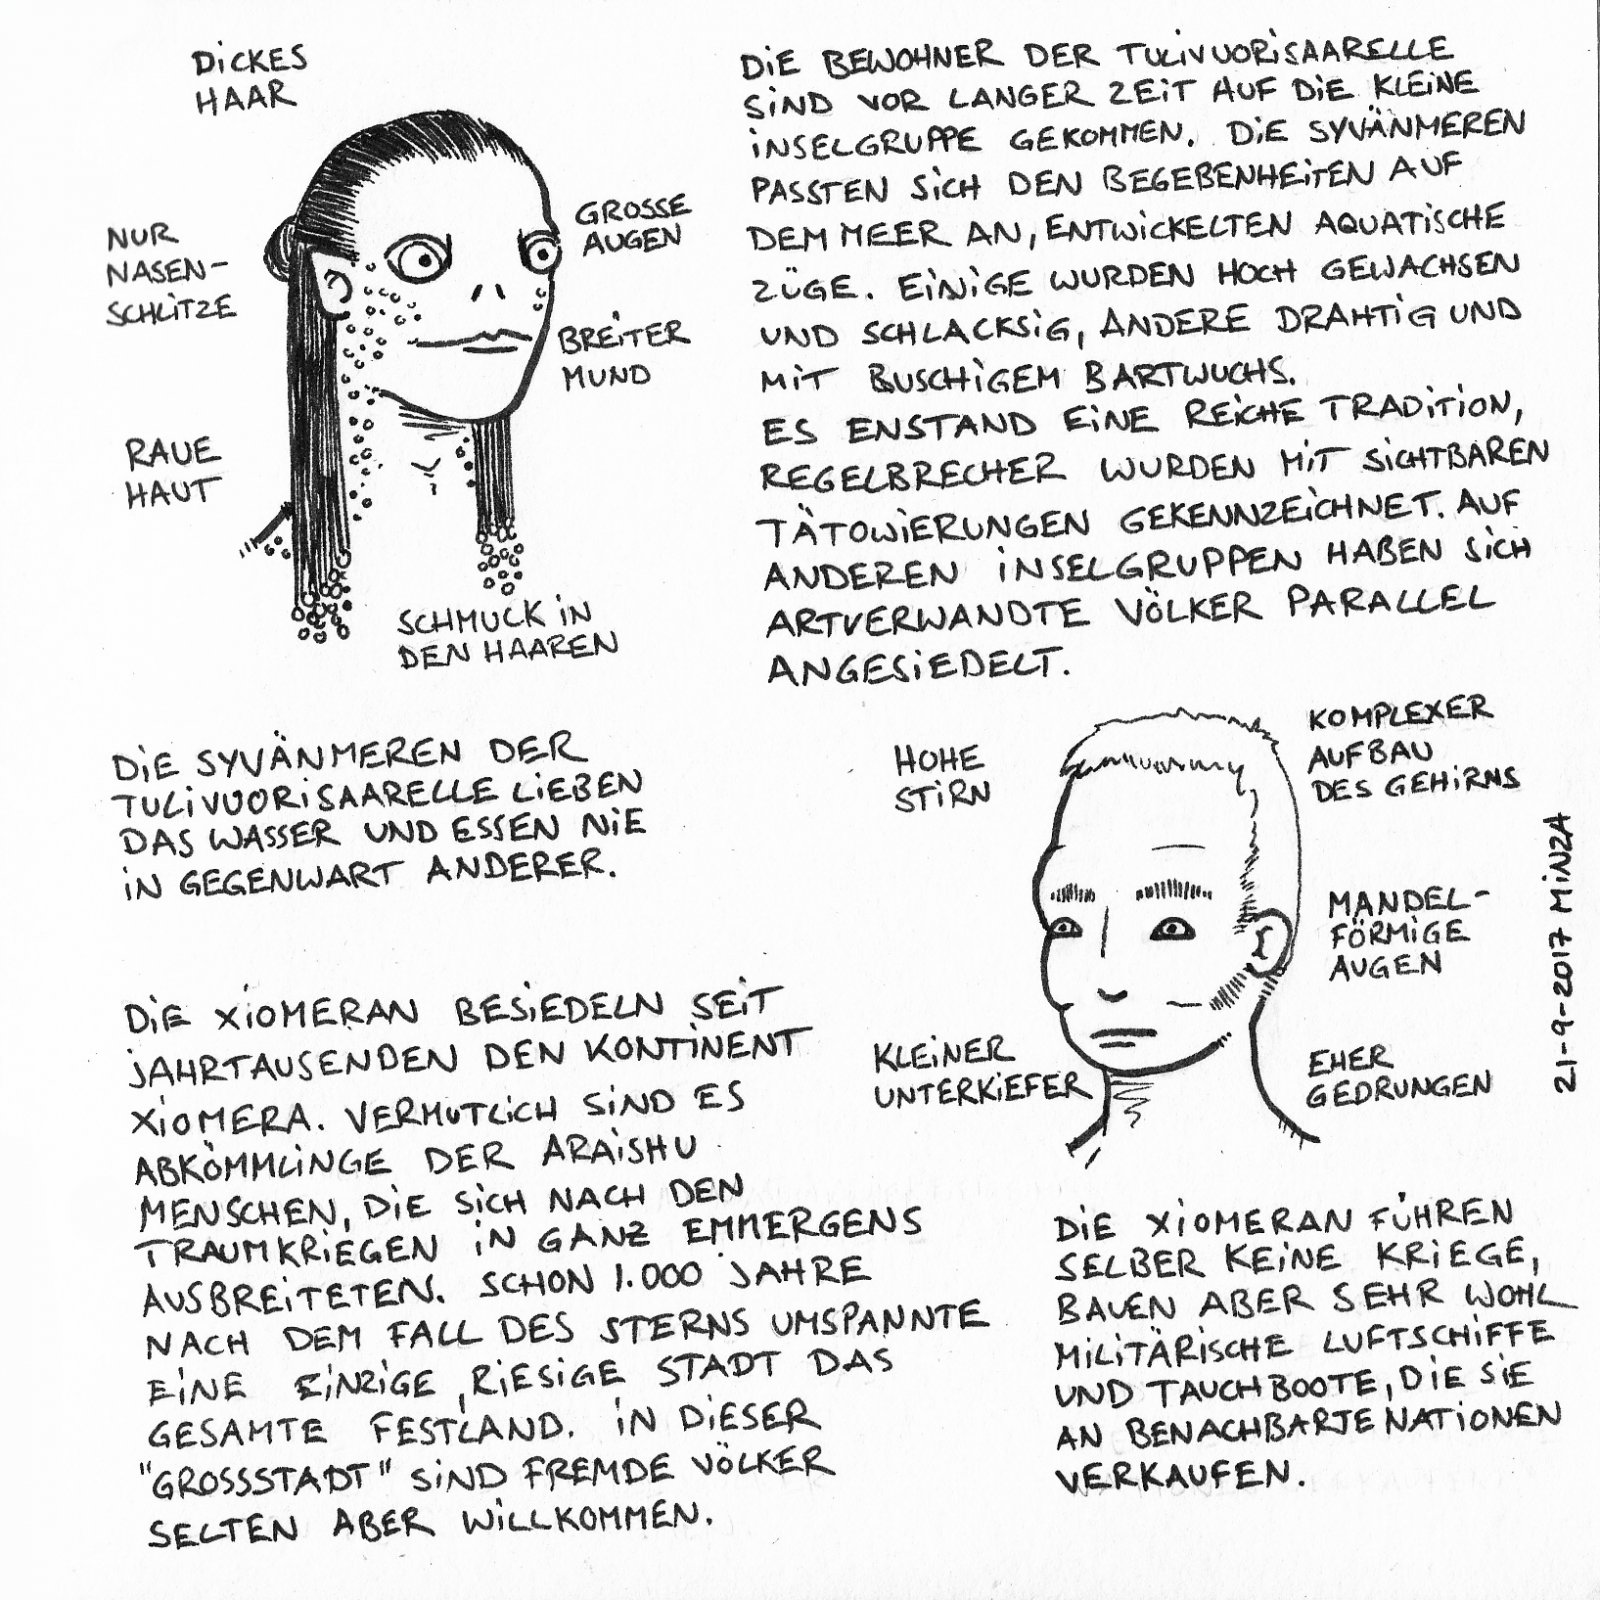 DICKES
HAAR
NUR
NASEN-
SCHLITZE
GROSSE
AUGEN
BREITER
MUND
RAUE
HAUT
SCHMUCK IN
DEN HAAREN
DIE BEWOHNER DER TULIVUORISAARELLE
SIND VOR LANGER ZEIT AUF DIE KLEINE
INSELGRUPPE GEKOMMEN. DIE SYVÄNMEREN
PASSTEN SICH DEN BEGEBENHEITEN AUF
DEM MEER AN, ENTWICKELTEN AQUATISCHE
ZÜGE. EINIGE WURDEN HOCH GEWACHSEN
UND SCHLACKSIG, ANDERE DRAHTIG UND
MIT BUSCHIGEM BARTWUCHS.
ES ENSTAND EINE REICHE TRADITION,
REGELBRECHER WURDEN MIT SICHTBAREN
TÄTOWIERUNGEN GEKENNZEICHNET. AUF
ANDEREN INSELGRUPPEN HABEN SICH
ARTVERWANDTE VÖLKER PARALLEL
ANGESIEDELT.
DIE SYVÄNMEREN DER
TULIVUORISAARELLE LIEBEN
DAS WASSER UND ESSEN NIE
IN GEGENWART ANDERER.
HOHE
STIRN
KOMPLEXER
AUFBAU
DES GEHIRNS
MANDEL-
FÖRMIGE
AUGEN
KLEINER
UNTERKIEFER
EHER
GEDRUNGEN
21-9-2017 MINZA
DIE XIOMERAN BESIEDELN SEIT
JAHRTAUSENDEN DEN KONTINENT
XIOMERA. VERMUTLICH SIND ES
ABKÖMMLINGE DER ARAISHU
MENSCHEN, DIE SICH NACH DEN
TRAUMKRIEGEN IN GANZ EMMERGENS
AUSBREITETEN. SCHON 1.000 JAHRE
NACH DEM FALL DES STERNS UMSPANNTE
EINE EINZIGE, RIESIGE STADT DAS
GESAMTE FESTLAND. IN DIESER
"GROSSSTADT" SIND FREMDE VÖLKER
SELTEN ABER WILLKOMMEN.
DIE XIOMERAN FÜHREN
SELBER KEINE KRIEGE,
BAUEN ABER SEHR WOHL
MILITÄRISCHE LUFTSCHIFFE
UND TAUCHBOOTE, DIE SIE
AN BENACHBARTE NATIONEN
VERKAUFEN.